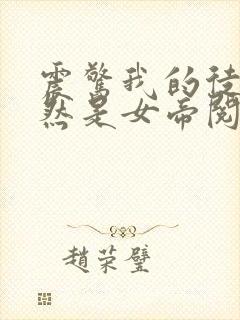 震驚我的徒
然是女帝閱
趙荣璧